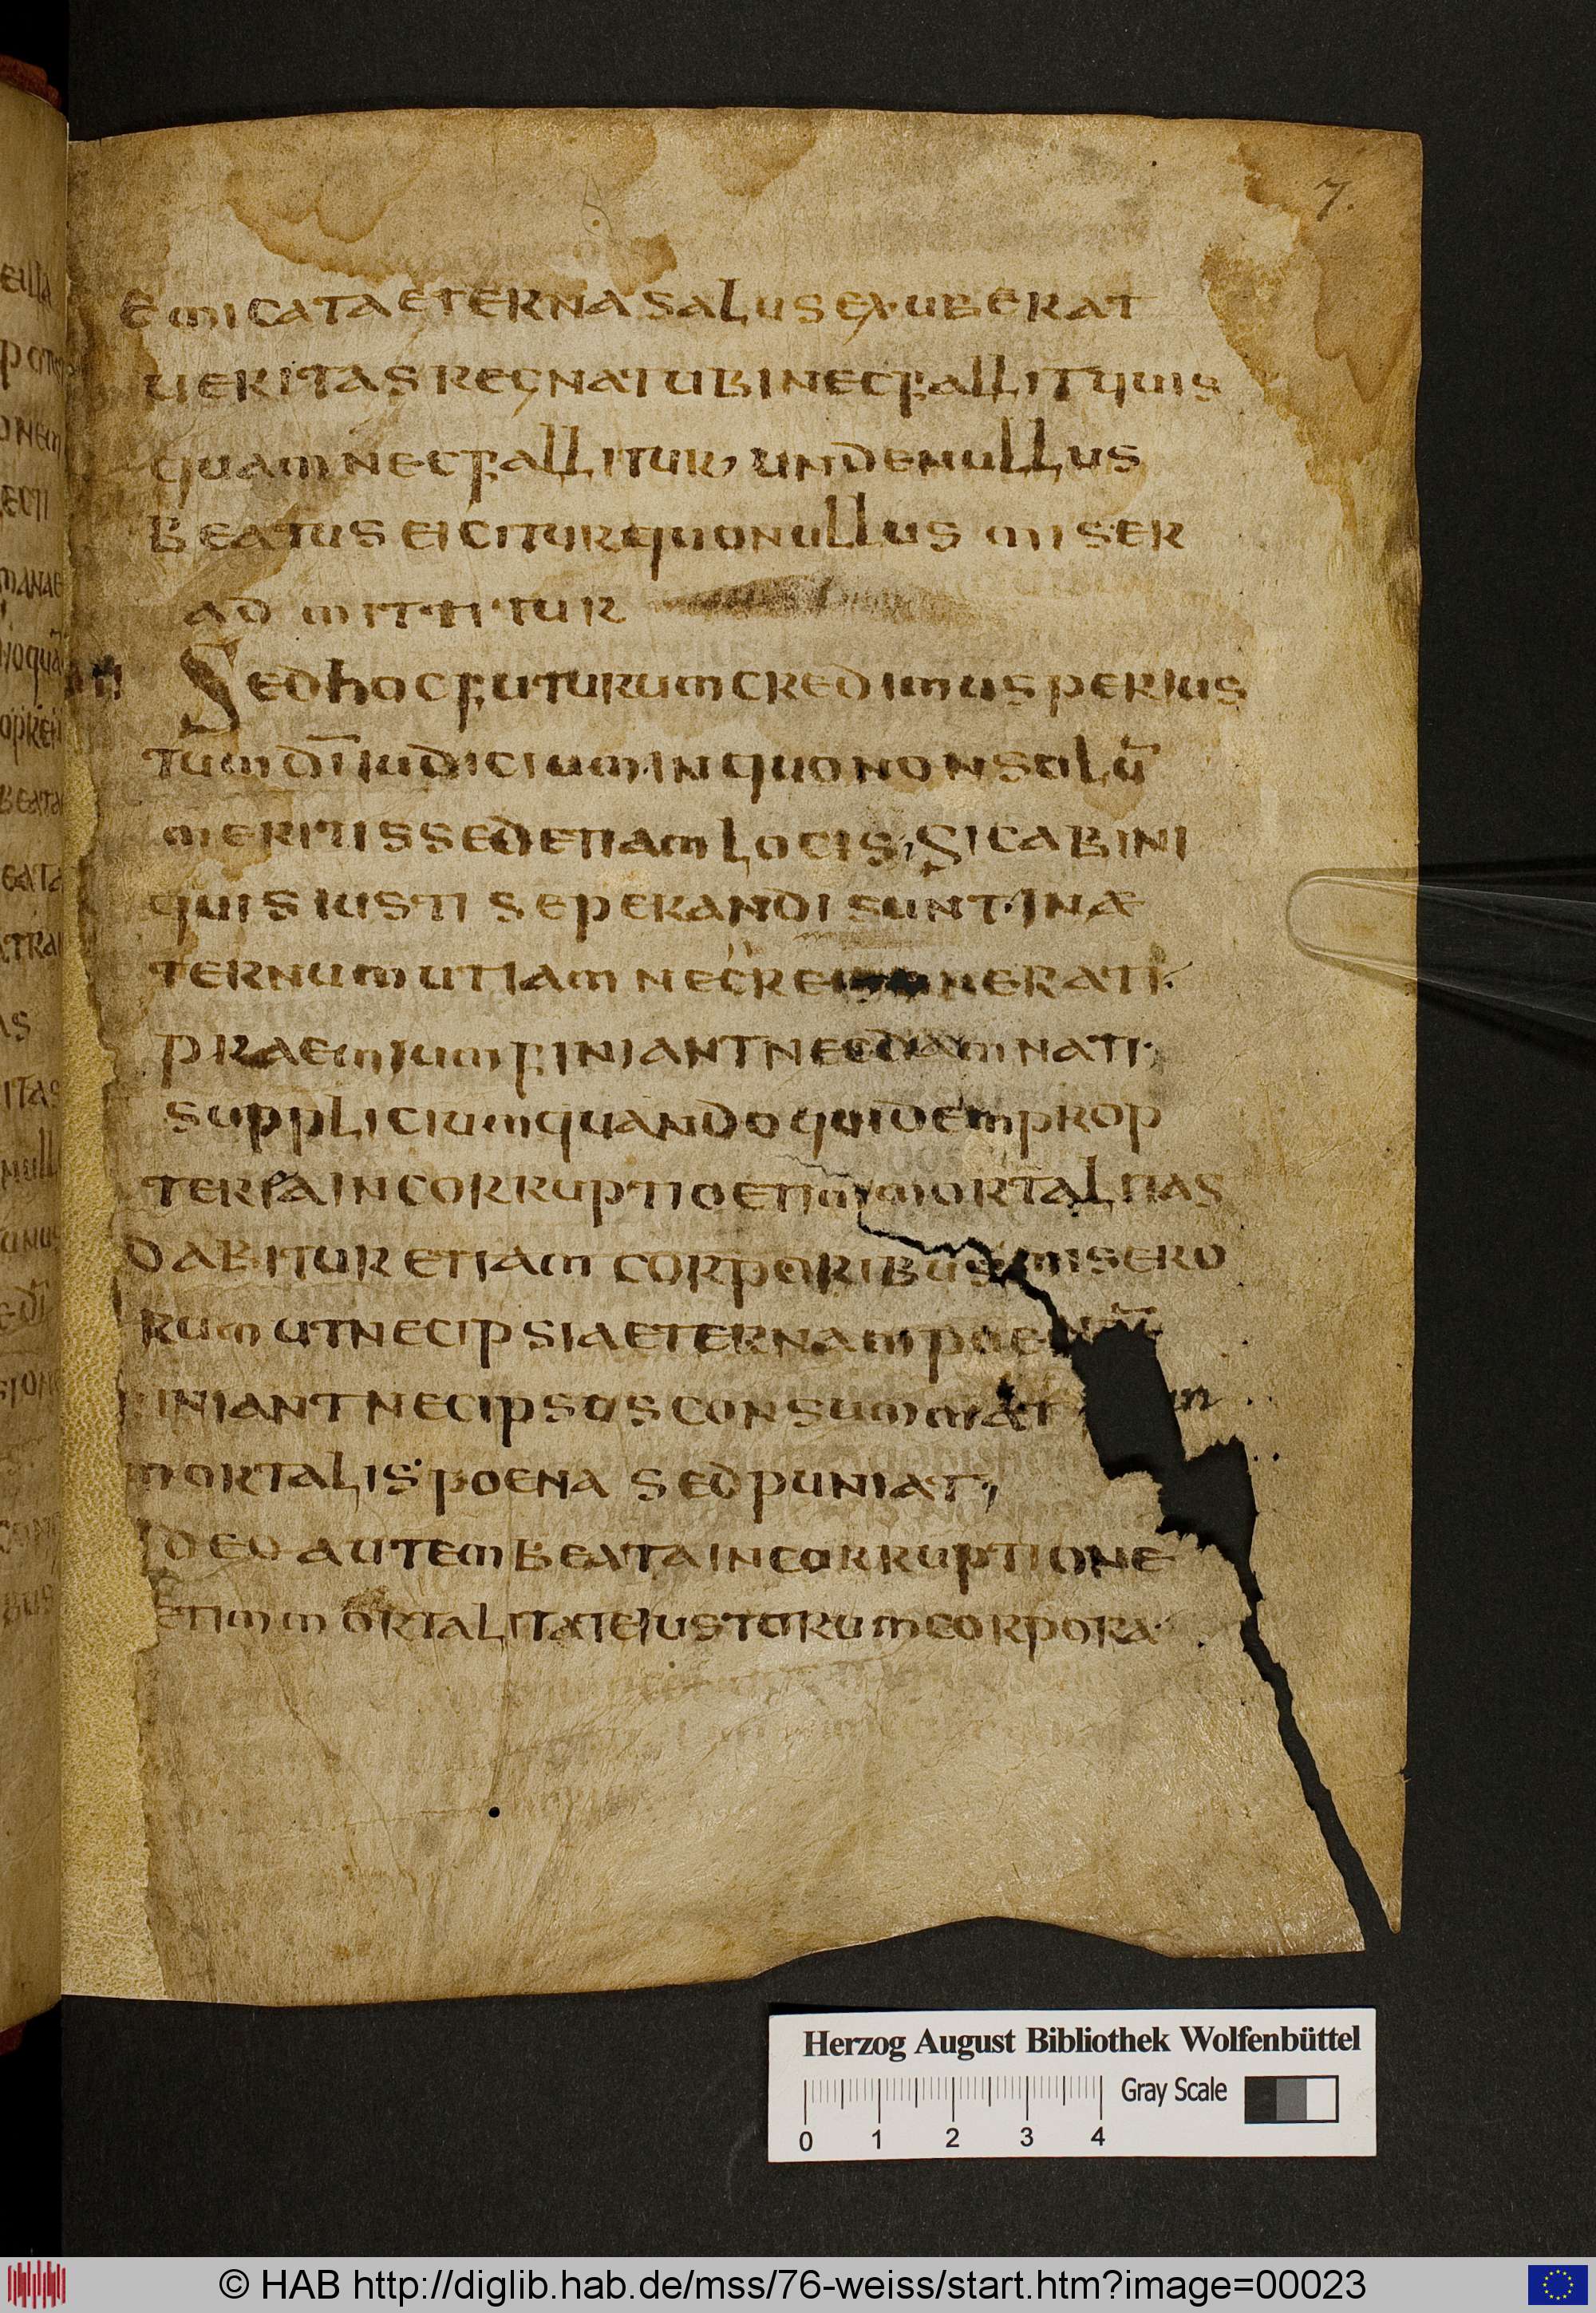 7.
emicat aeterna salus exuberat
ueritas regnat ubi nec fallit quis
quam nec fallitur unde nullus
beatus eicitur quo nullus miser
admittitur
Sed hoc futurum credimus per ius
tum dī iudicium. in quo non solū
meritis sed etiam locis, sic ab ini
quis iusti seperandi sunt. in æ
ternum ut iam nec remunerati.
praemium finiant nec damnati.
supplicium quando quidem prop
terea incorruptio et immortalitas
dabitur etiam corporibus misero
rum ut nec ipsi aeternam poenā
finiant nec ipsos consummat in
mortalis poena sed puniat,
Ideo autem beata incorruptione
et immortalitate iustorum corpora.
Herzog August Bibliothek Wolfenbüttel
Gray Scale
0 1 2 3 4
© HAB http://diglib.hab.de/mss/76-weiss/start.htm?image=00023